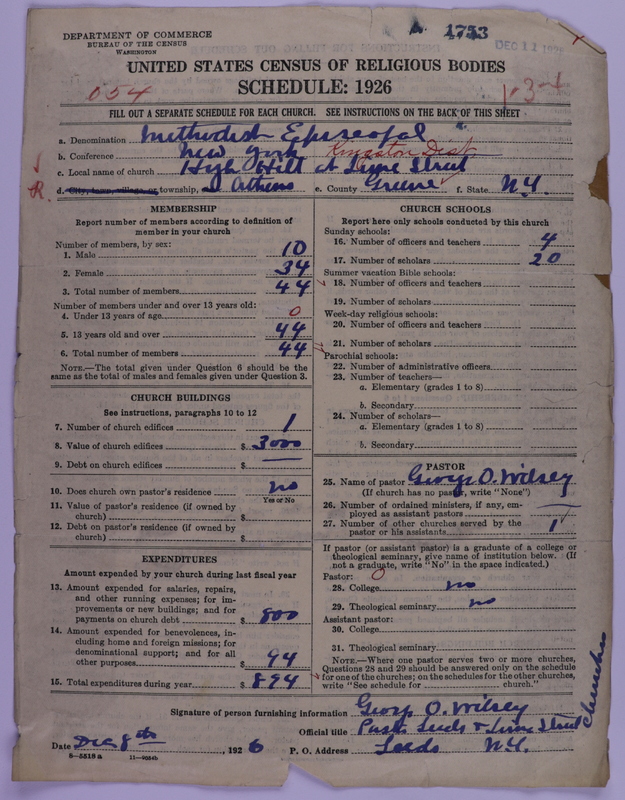 DEPARTMENT OF COMMERCE
BUREAU OF THE CENSUS
WASHINGTON
1753
DEC 12 192
UNITED STATES CENSUS OF RELIGIOUS BODIES
SCHEDULE: 1926
054
1-3-1
FILL OUT A SEPARATE SCHEDULE FOR EACH CHURCH. SEE INSTRUCTIONS ON THE BACK OF THIS SHEET
a. Denomination Methodist Episcopal
b. Conference New York Kingston Dist
c. Local name of church High Hill at Lime Street
R. d. City, town, village, or township, Athens e. County Greene f. State N.Y.
MEMBERSHIP
Report number of members according to definition of
member in your church
Number of members, by sex:
1. Male 10
2. Female 34
3. Total number of members 44
Number of members under and over 13 years old:
4. Under 13 years of age 0
5. 13 years old and over 44
6. Total number of members 44
NOTE.—The total given under Question 6 should be the
same as the total of males and females given under Question 3.
CHURCH BUILDINGS
See instructions, paragraphs 10 to 12
7. Number of church edifices 1
8. Value of church edifices $ 3000
9. Debt on church edifices $ —
10. Does church own pastor's residence no
Yes or No
11. Value of pastor's residence (if owned by
church) $
12. Debt on pastor's residence (if owned by
church) $
EXPENDITURES
Amount expended by your church during last fiscal year
13. Amount expended for salaries, repairs,
and other running expenses; for im-
provements or new buildings; and for
payments on church debt $ 800
14. Amount expended for benevolences, in-
cluding home and foreign missions; for
denominational support; and for all
other purposes $ 94
15. Total expenditures during year $ 894
CHURCH SCHOOLS
Report here only schools conducted by this church
Sunday schools:
16. Number of officers and teachers 4
17. Number of scholars 20
Summer vacation Bible schools:
18. Number of officers and teachers
19. Number of scholars
Week-day religious schools:
20. Number of officers and teachers
21. Number of scholars
Parochial schools:
22. Number of administrative officers
23. Number of teachers—
a. Elementary (grades 1 to 8)
b. Secondary
24. Number of scholars—
a. Elementary (grades 1 to 8)
b. Secondary
PASTOR
25. Name of pastor George O. Wilsey
(If church has no pastor, write "None")
26. Number of ordained ministers, if any, em-
ployed as assistant pastors —
27. Number of other churches served by the
pastor or his assistants 1
If pastor (or assistant pastor) is a graduate of a college or
theological seminary, give name of institution below. (If
not a graduate, write "No" in the space indicated.)
Pastor: 0
28. College no
29. Theological seminary no
Assistant pastor:
30. College
31. Theological seminary
NOTE.—Where one pastor serves two or more churches,
Questions 28 and 29 should be answered only on the schedule
for one of the churches; on the schedules for the other churches,
write "See schedule for church."
Signature of person furnishing information George O. Wilsey
Official title Pastor Leeds & Lime Street churches
Date Dec 8th, 1926 P. O. Address Leeds N.Y.
8—5518 a